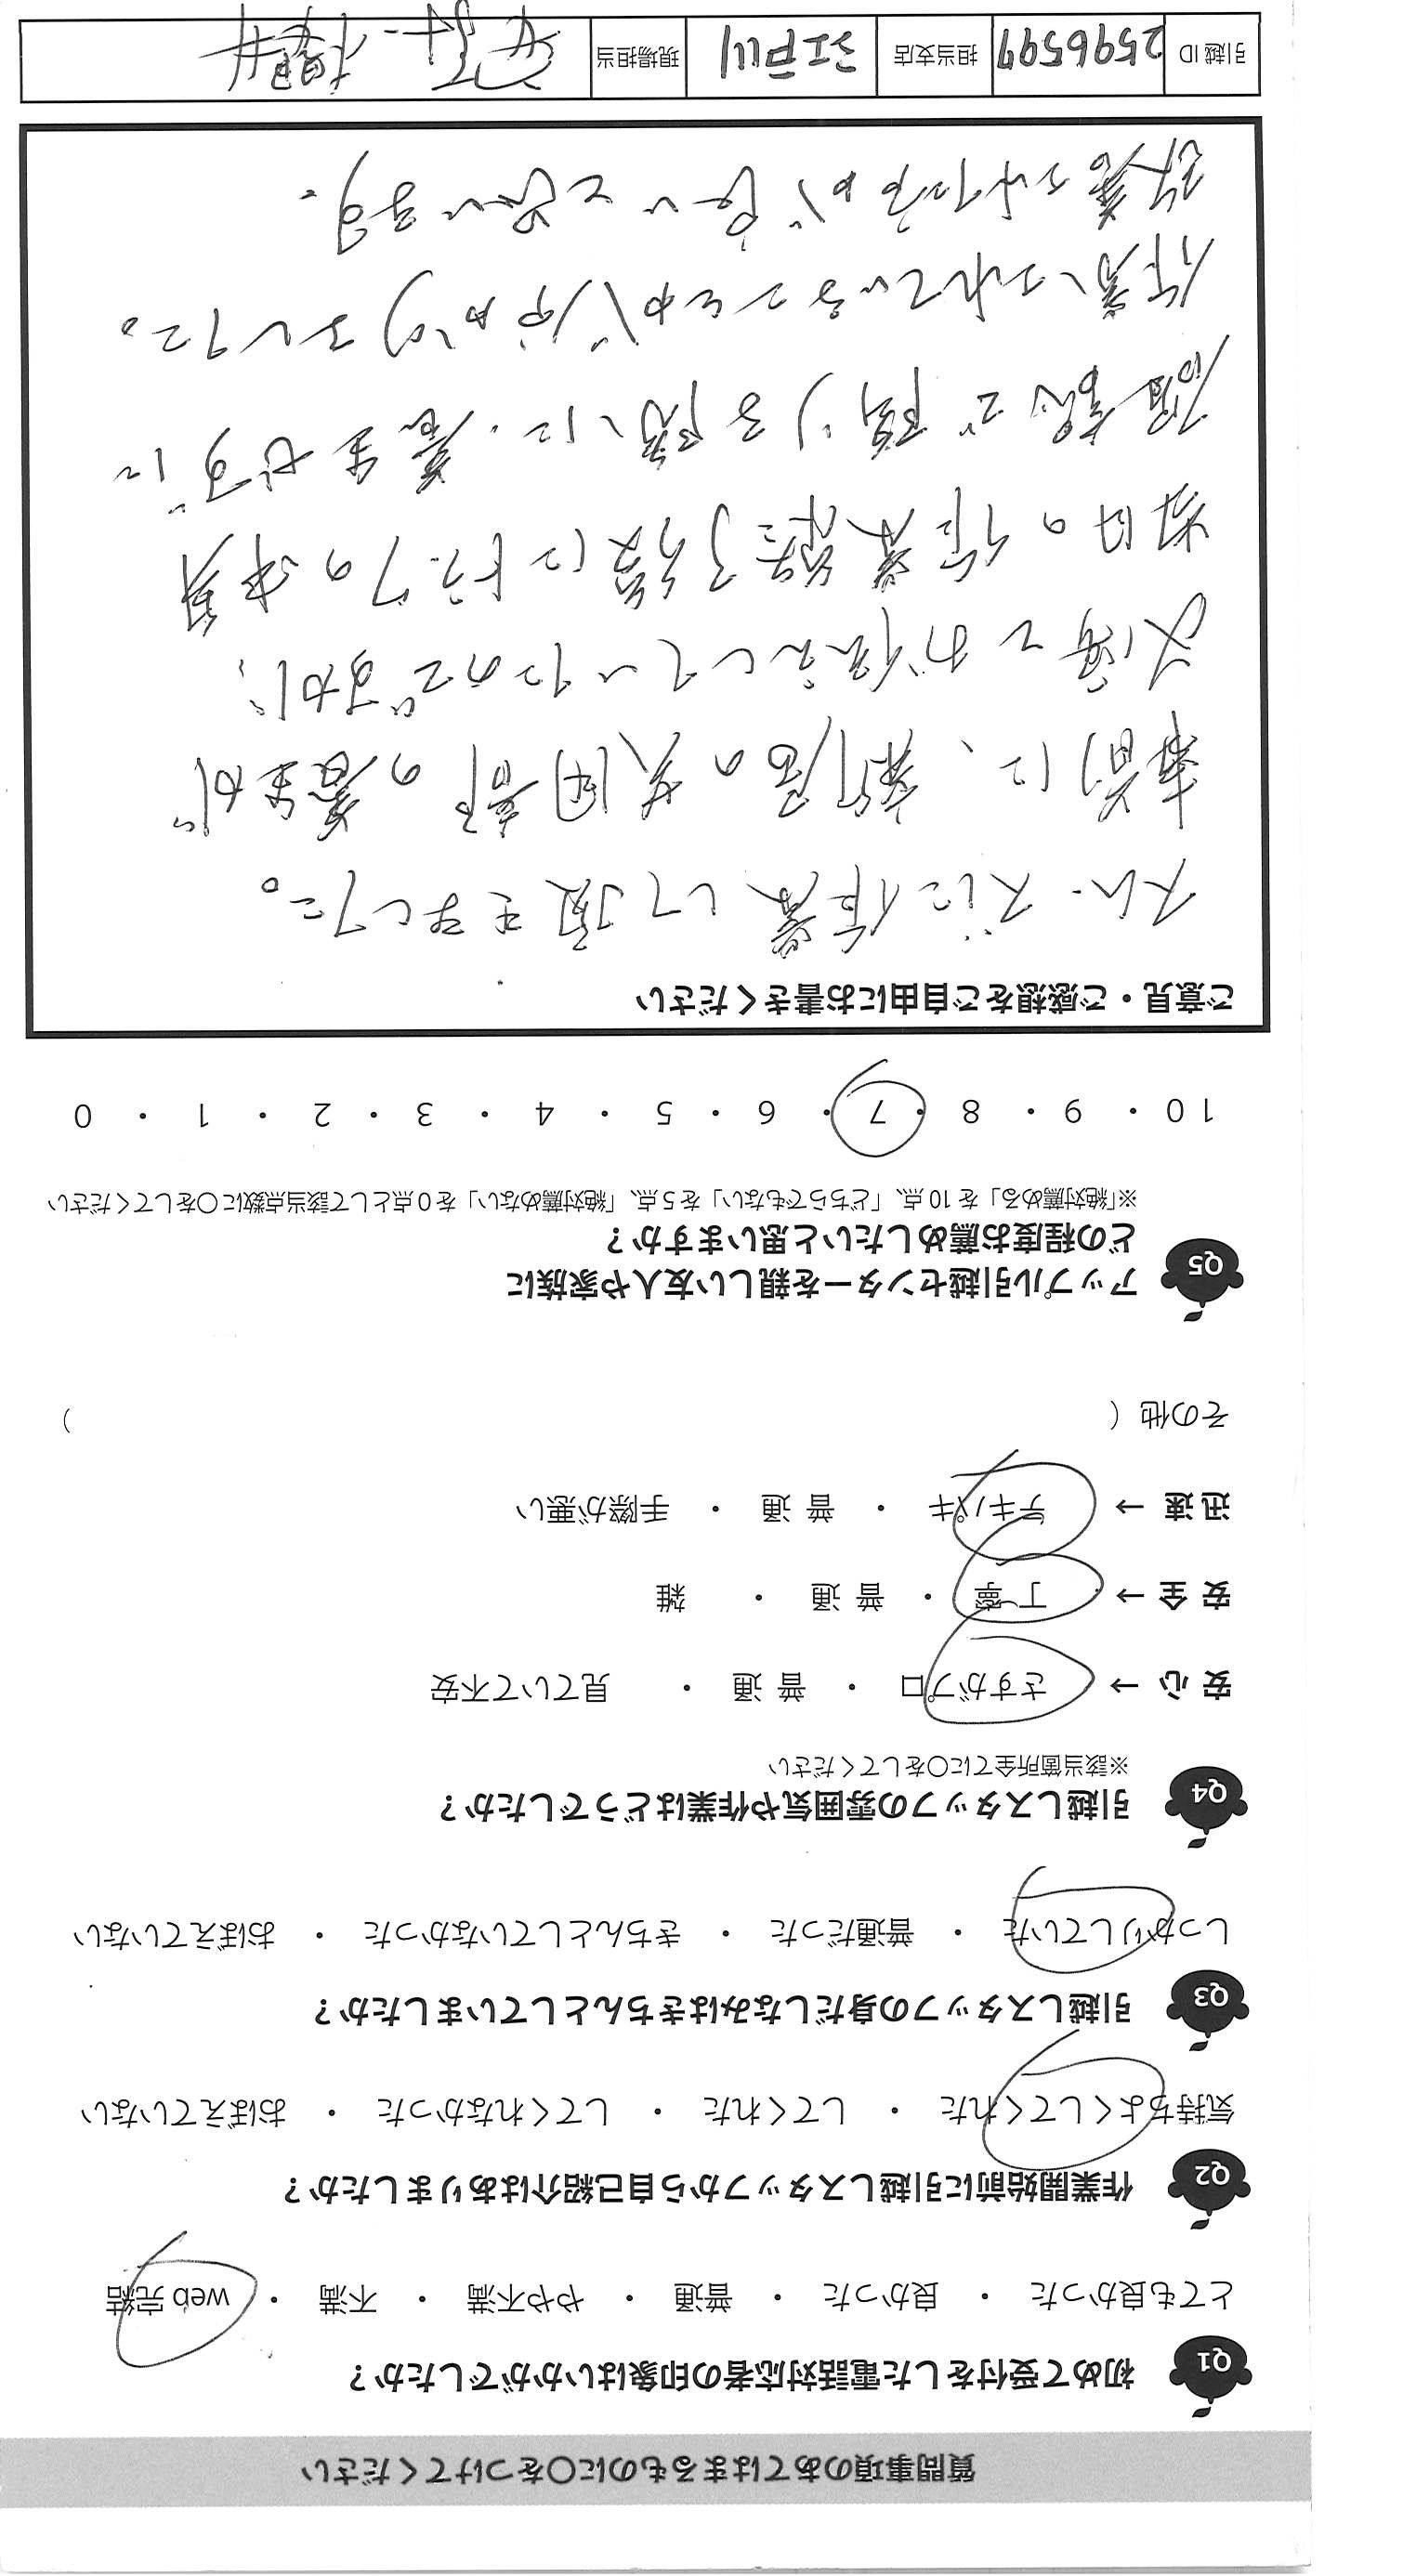 質問事項のあてはまるものに○をつけてください
Q1 初めて受付をした電話対応者の印象はいかがでしたか？
とても良かった ・ 良かった ・ 普通 ・ やや不満 ・ 不満 ・ web 完結
Q2 作業開始前に引越しスタッフから自己紹介はありましたか？
気持ちよくしてくれた ・ してくれた ・ してくれなかった ・ おぼえていない
Q3 引越しスタッフの身だしなみはきちんとしていましたか？
しっかりしていた ・ 普通だった ・ きちんとしていなかった ・ おぼえていない
Q4 引越しスタッフの雰囲気や作業はどうでしたか？
※該当箇所全てに○をしてください
安 心 → さすがプロ ・ 普 通 ・ 見ていて不安
安 全 → 丁 寧 ・ 普 通 ・ 雑
迅 速 → テキパキ ・ 普 通 ・ 手際が悪い
その他（ ）
Q5 アップル引越センターを親しい友人や家族に
どの程度お薦めしたいと思いますか？
※「絶対薦める」を 10 点、「どちらでもない」を 5 点、「絶対薦めない」を 0 点として該当点数に○をしてください
10 ・ 9 ・ 8 ・ 7 ・ 6 ・ 5 ・ 4 ・ 3 ・ 2 ・ 1 ・ 0
ご意見・ご感想をご自由にお書きください
スムーズに作業して頂きました。
事前に、新居の玄関部の養生が
必要とお伝えしていたのですが、
当日の作業終了後にドアの部品
確認で通り際に、養生せずに
作業されていることが分かりました。
改善された方が良いと思います。
引越 ID 2596597 担当支店 江戸川 現場担当